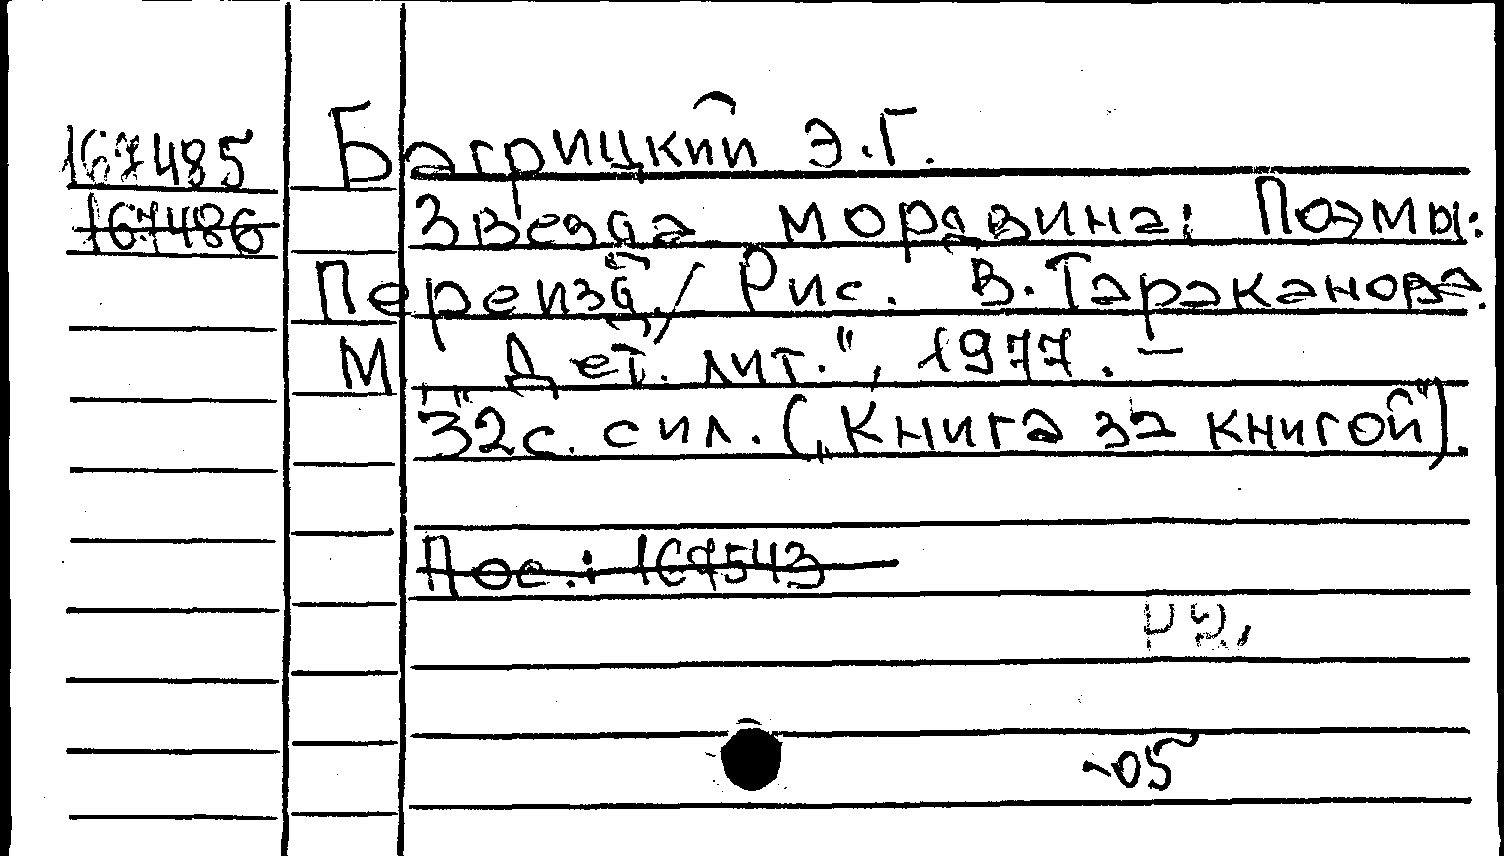 167485 Багрицкий Э.Г.
167486 Звезда мордвина: Поэмы.
Переизд./ Рис. В. Тараканова.
М „Дет. лит.", 1977. –
32с. с ил. („Книга за книгой").
Пос.: 167543
-05